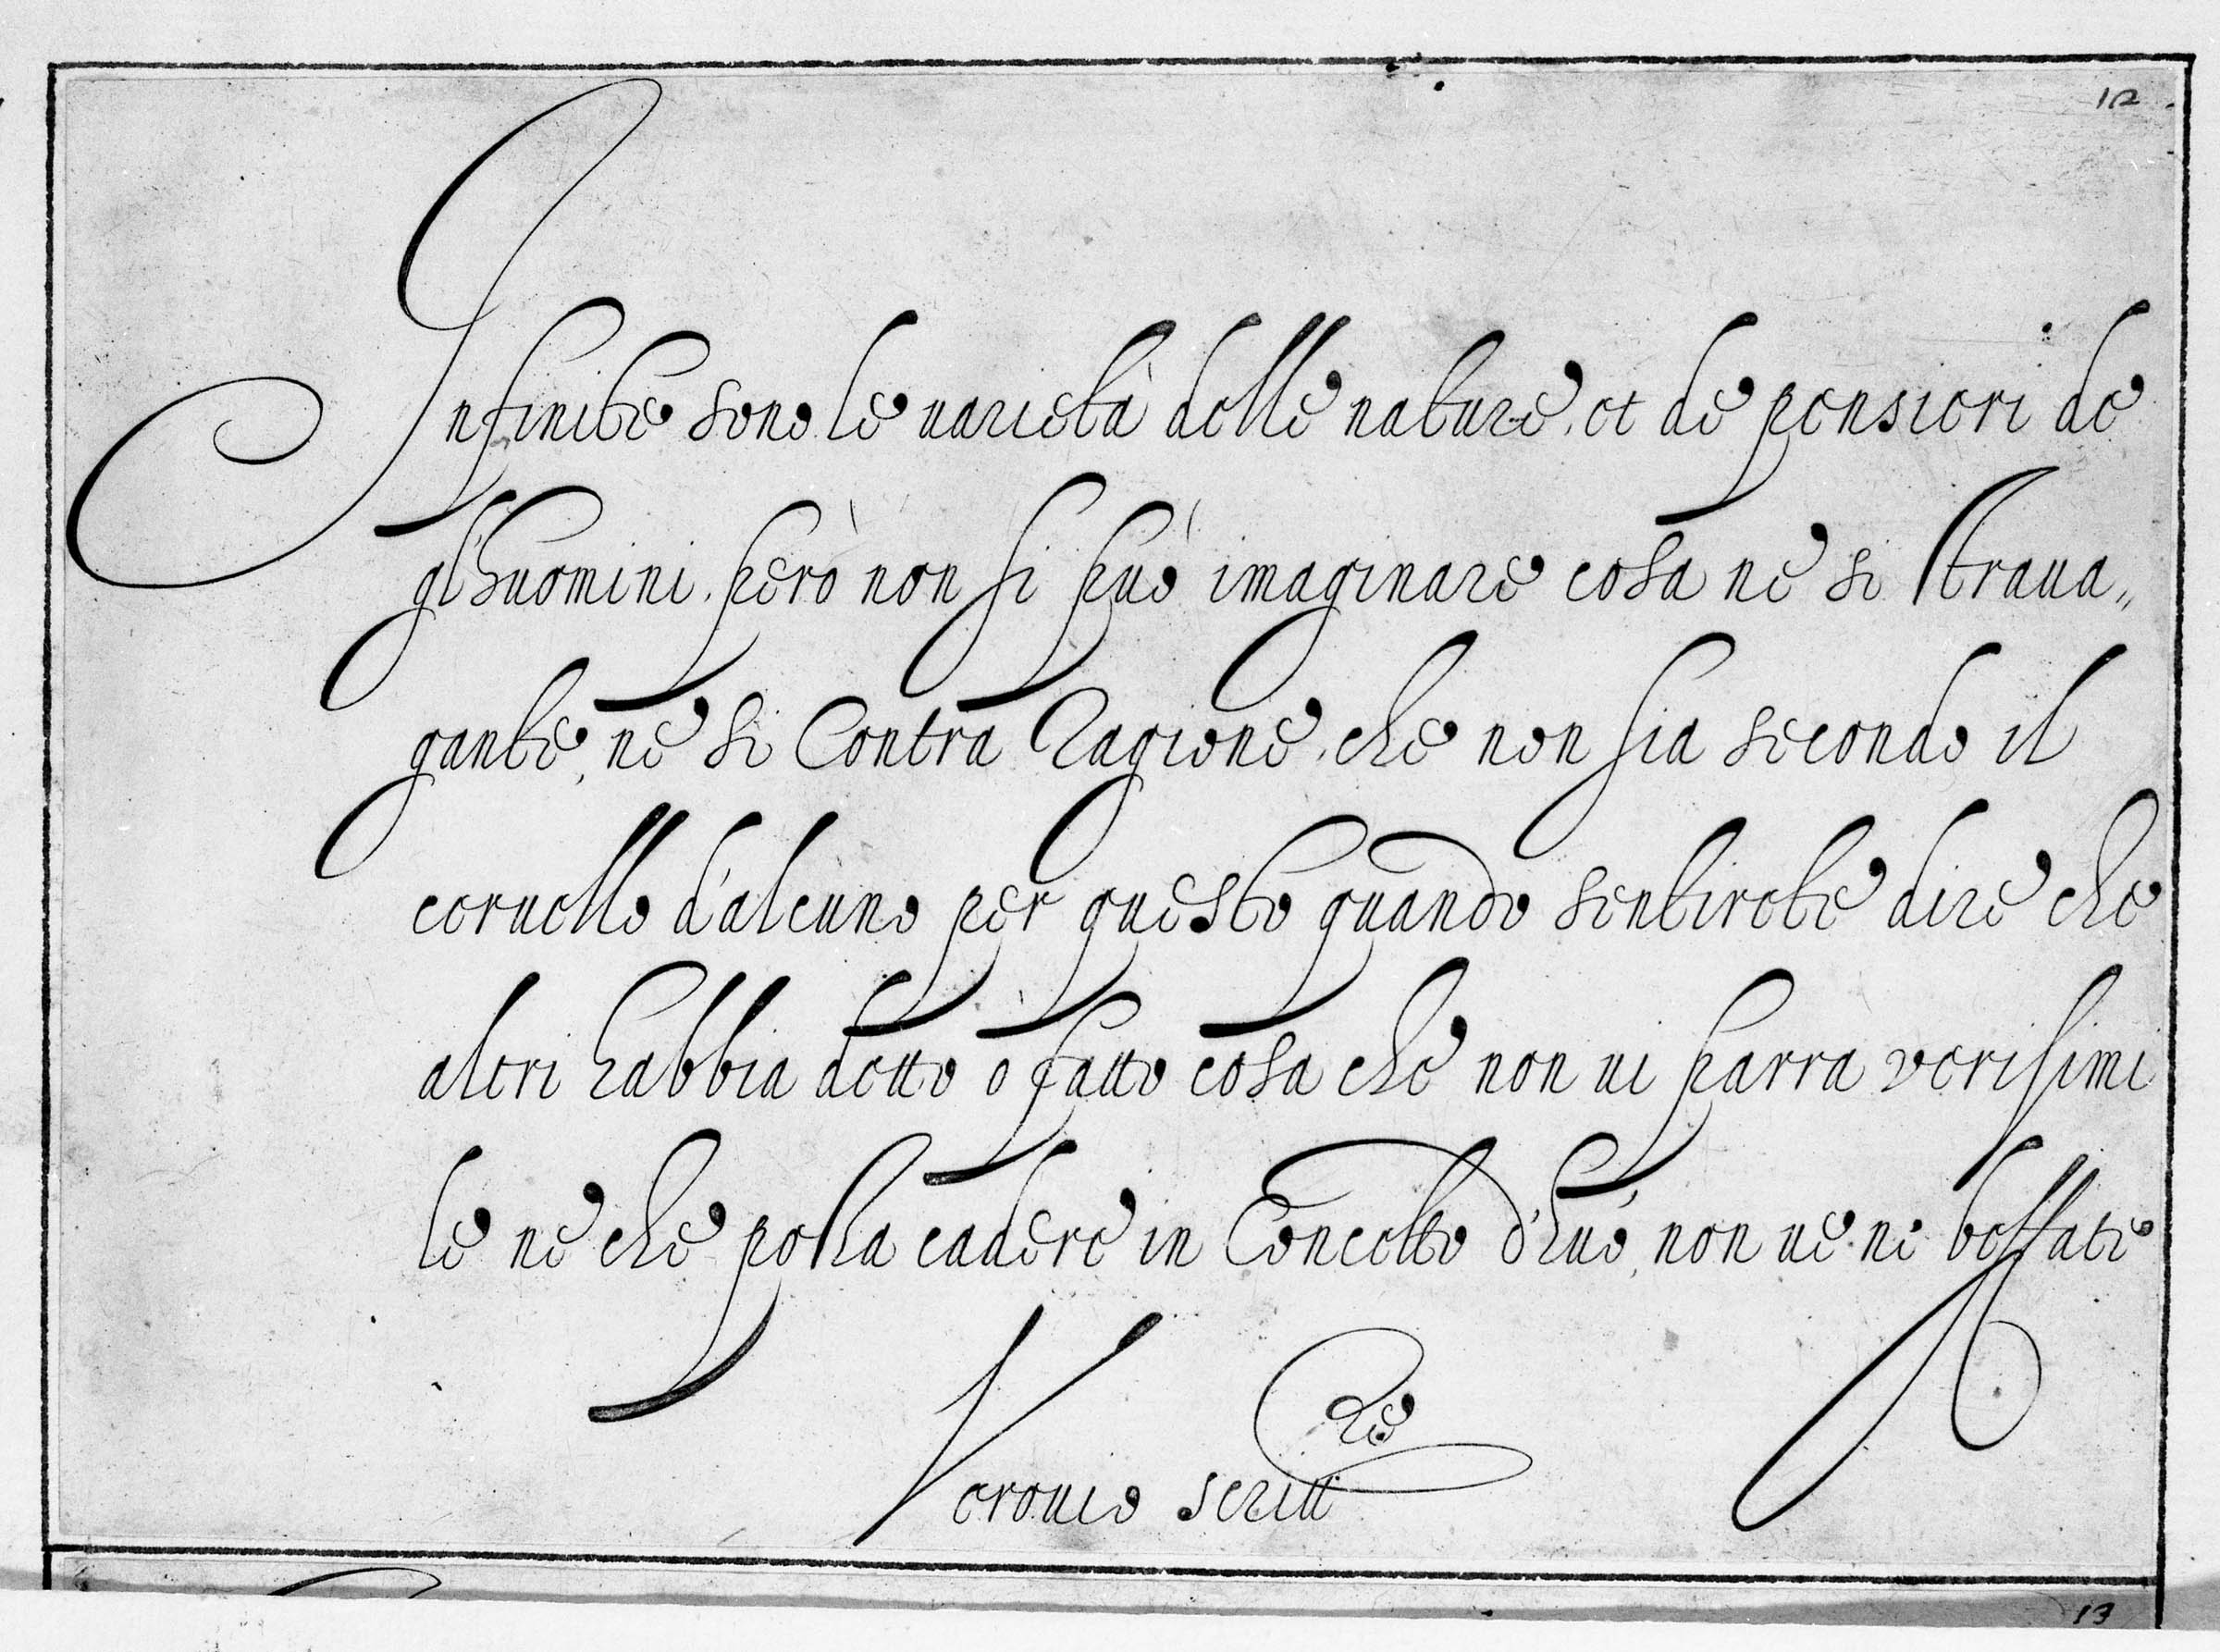 12
Infinite sono le uarietà delle nature, et de pensieri de
gl'huomini. però non si può imaginare cosa ne si straua„
gante, ne si Contra Ragione, che non sia secondo il
ceruello d'alcuno per questo quando sentirete dire che
altri habbia detto ò fatto cosa che non ui parra verisimi
le ne che possa cadere in Concetto d'huo, non ue ne beffate
Verouio scritt
re
13